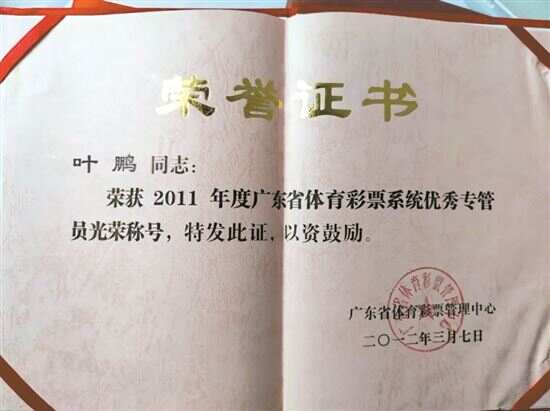 荣誉证书
叶鹏 同志：
荣获 2011 年度广东省体育彩票系统优秀专管
员光荣称号，特发此证，以资鼓励。
广东省体育彩票管理中心
二〇一二年三月七日